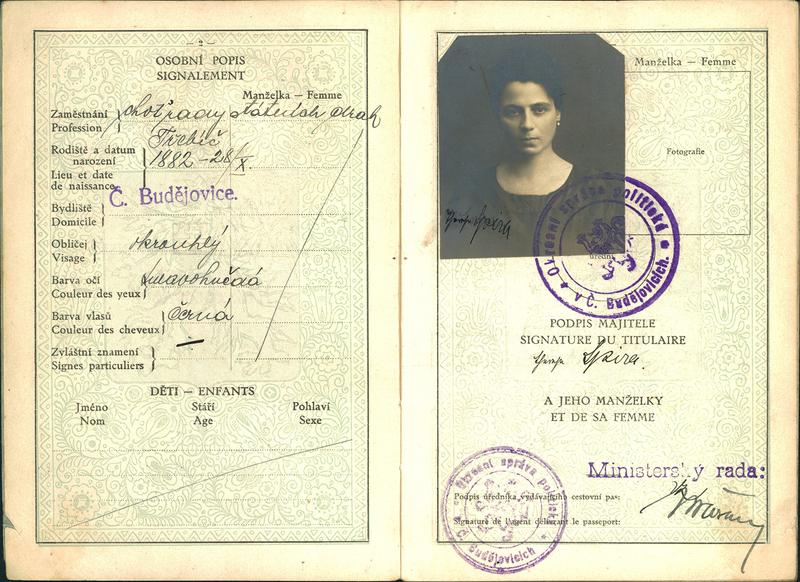 — 2 —
OSOBNÍ POPIS
SIGNALEMENT
Manželka — Femme
Zaměstnání
Profession
choť rady státních drah
Rodiště a datum
narození
Lieu et date
de naissance
Třebíč
1882 – 28/X.
Bydliště
Domicile
Č. Budějovice.
Obličej
Visage
okrouhlý
Barva očí
Couleur des yeux
tmavohnědá
Barva vlasů
Couleur des cheveux
černá
Zvláštní znamení
Signes particuliers
—
DĚTI — ENFANTS
Jméno Stáří Pohlaví
Nom Age Sexe
Manželka — Femme
Fotografie
Spira
Okresní správa politická
v Č. Budějovicích.
PODPIS MAJITELE
SIGNATURE DU TITULAIRE
Spira.
A JEHO MANŽELKY
ET DE SA FEMME
Ministerský rada:
Podpis úředníka vydávajícího cestovní pas:
Signature de l'agent délivrant le passeport:
Okresní správa politická
v Č. Budějovicích